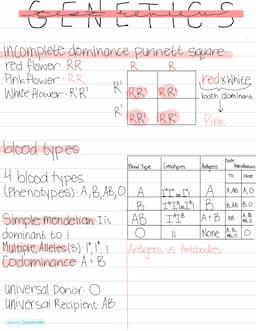 GENETICS
incomplete dominance punnett square
red flower: RR
Pink flower: RR'
White flower: R'R'
R R
R' RR' RR'
R' RR' RR'
red x White
both dominant
Pink
blood types
4 blood types
(Phenotypes): A, B, AB, O
Simple Mendelian I is
dominant to i
Multiple Alleles (3):
Codominance A + B
Universal Donor: O
Universal Recipient AB
Blood Type Genotypes Antigens
TO FROM
A A A, AB A, O
B B B, AB B, O
AB A + B AB A, B, AB, O
O ii None A, B, AB, O O
Antigens vs Antibodies